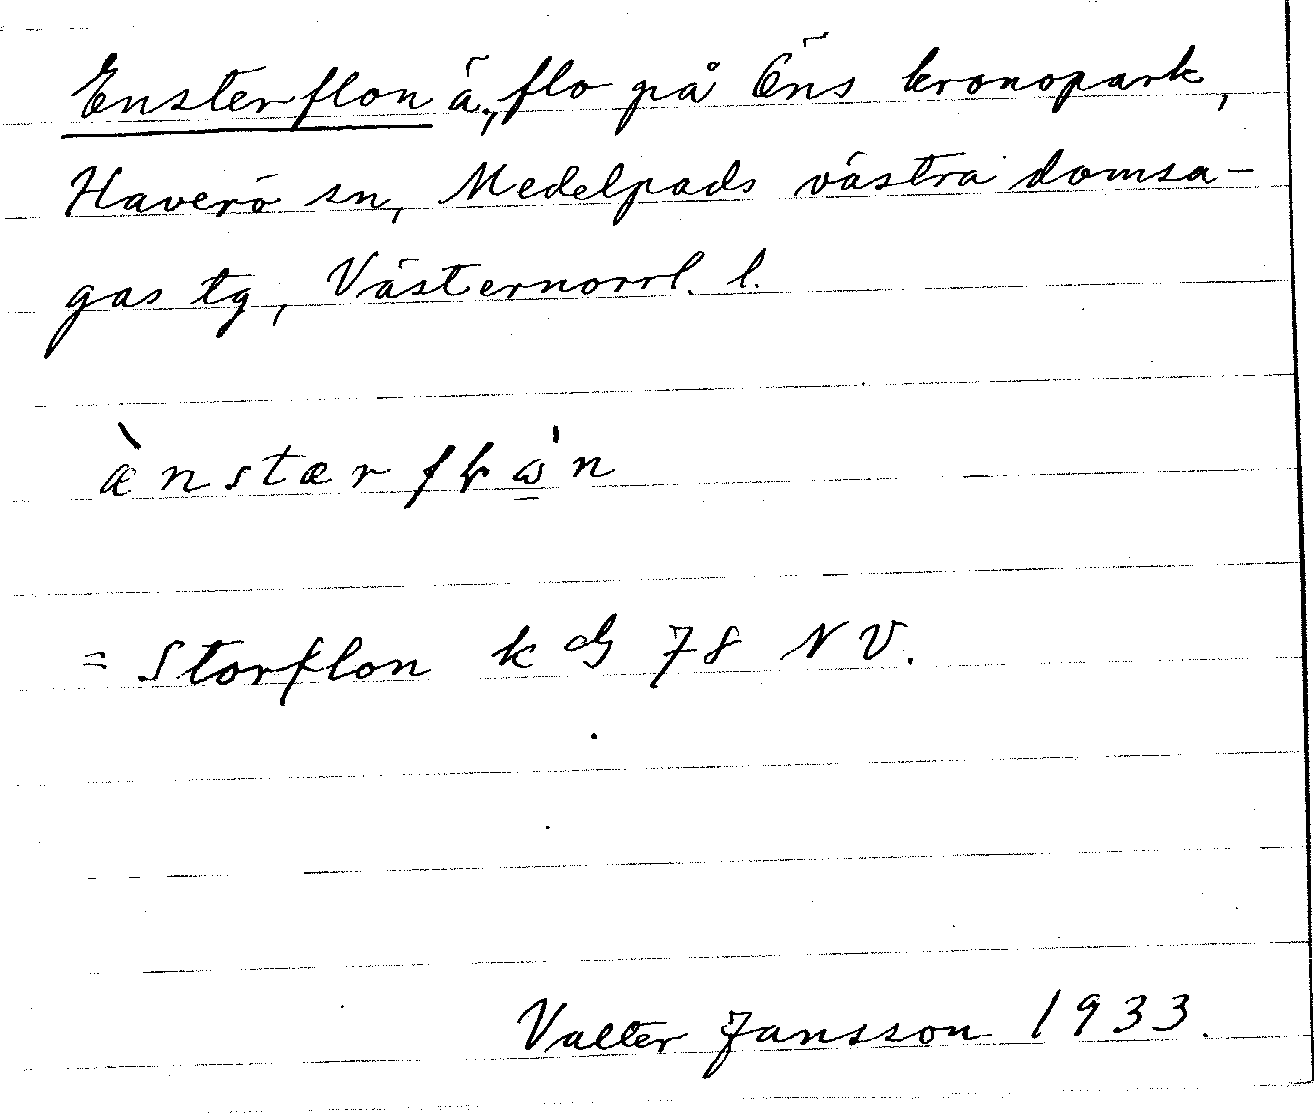 Ensterflon ä., flo på Öns kronopark,
Haverö sn, Medelpads västra domsa-
gas tg, Västernorrl. l.
æ̀nstær
= Storflon k bl 78 NV.
Valter Jansson 1933.